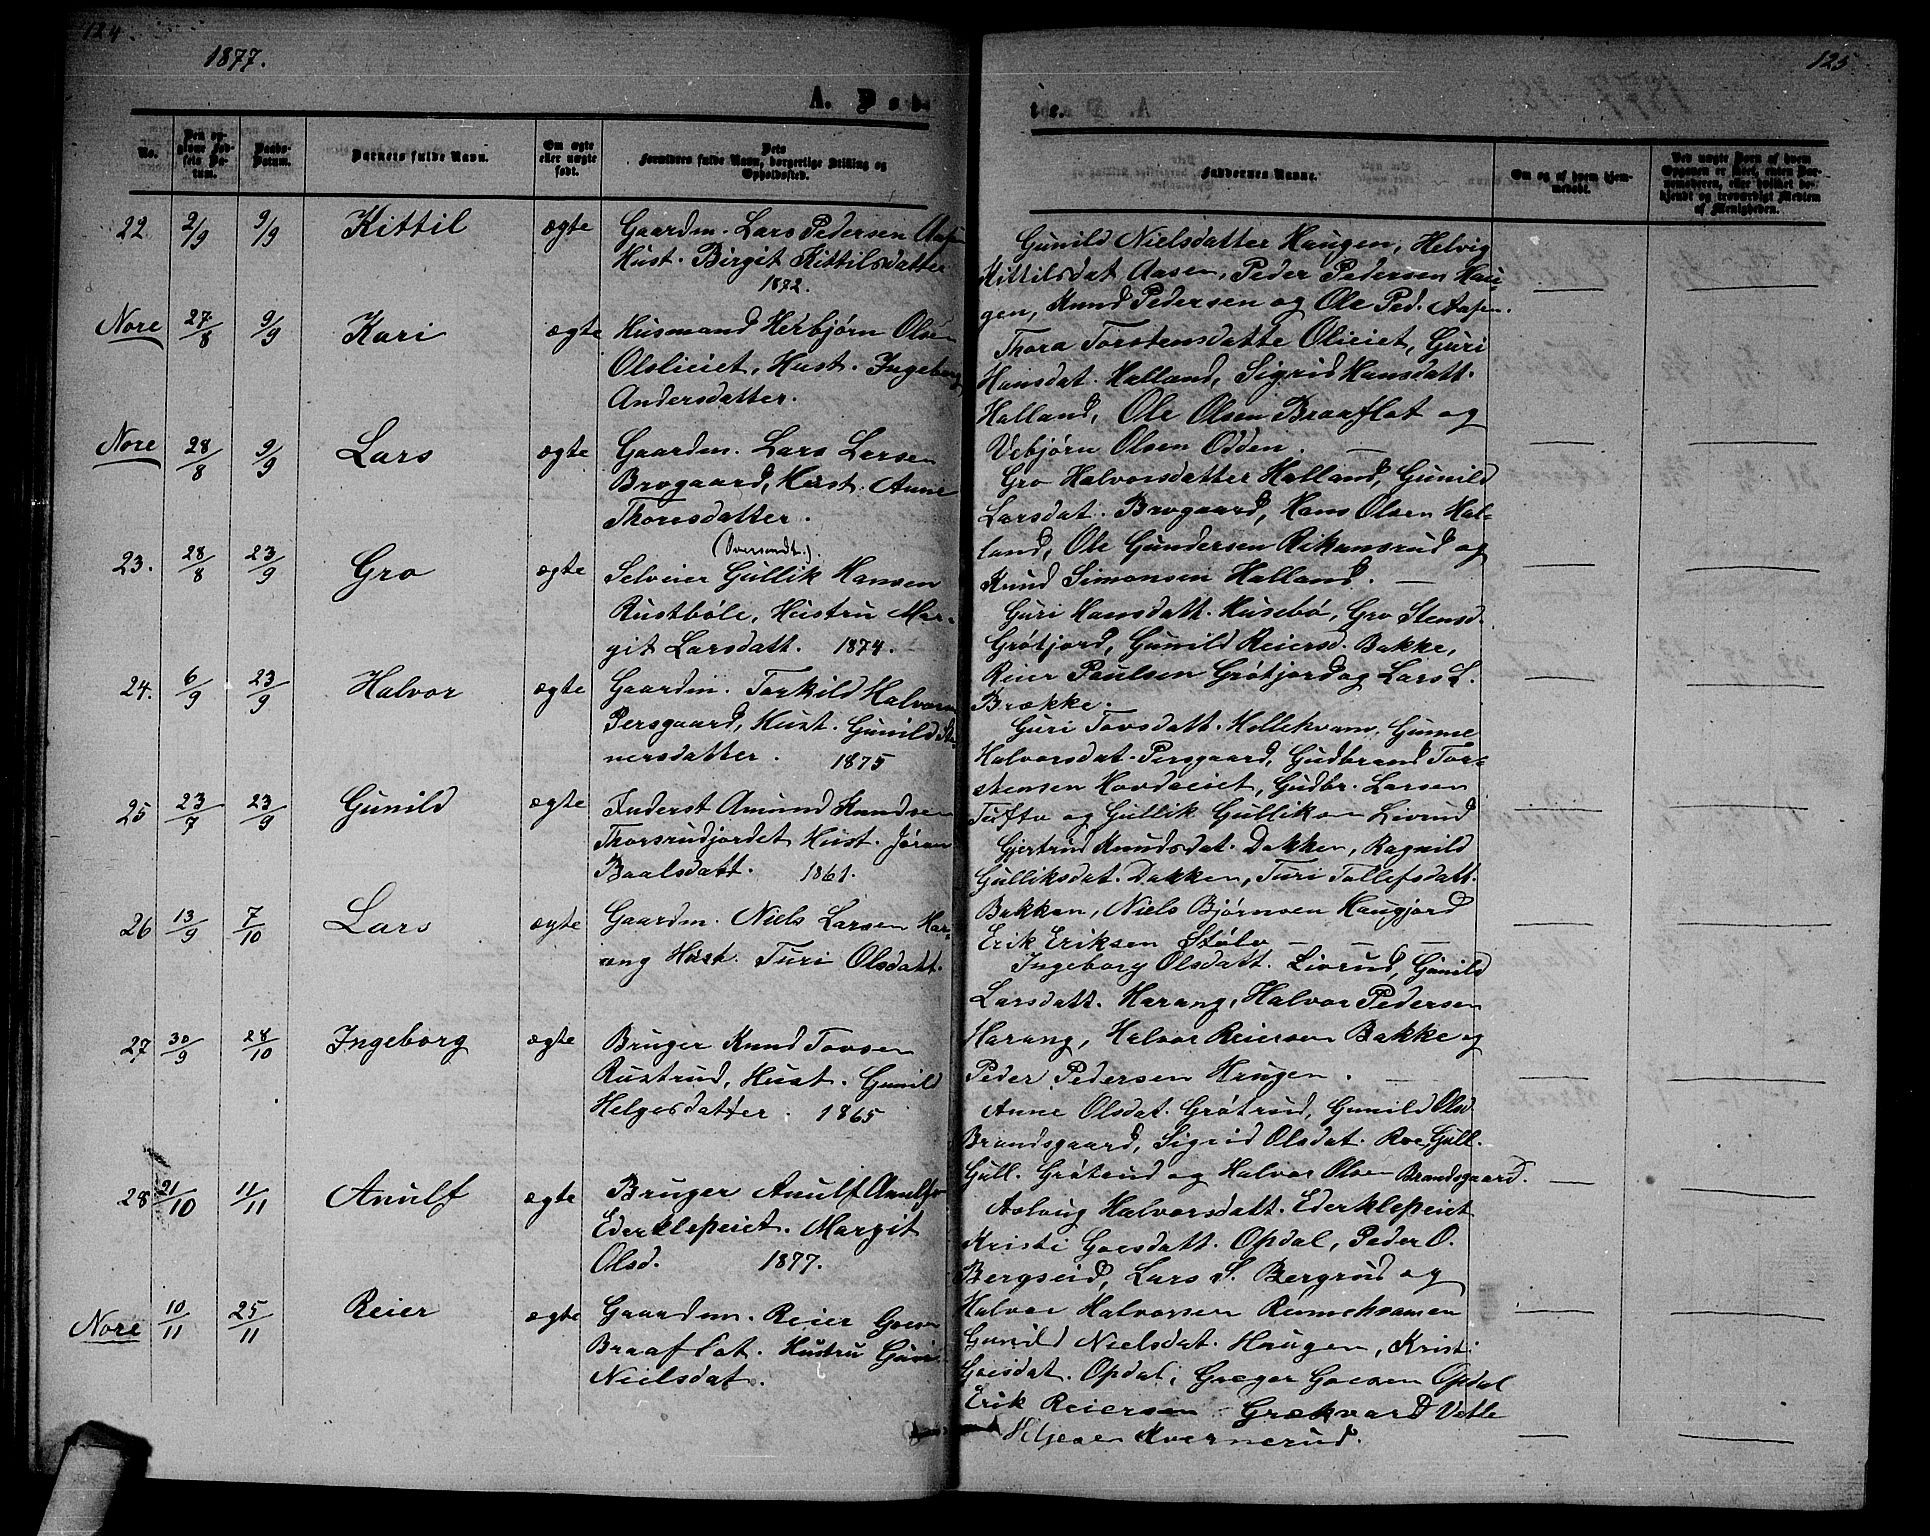 124.
1877.
A. Døb-
No.
Den op-
givne Fød-
sels Da-
tum.
Daabs-
Datum.
Barnets fulde Navn.
Om ægte
eller uægte
født.
Dets
Forældres fulde Navn, borgerlige Stilling og
Opholdssted.
22 2/9 9/9 Kittil ægte Gaardm. Lars Pedersen Aasen
Hust. Birgit Kittilsdatter
1872.
Nore 27/8 9/9 Kari ægte Husmand Herbjørn Olsen
Olslieiet, Hust. Ingeborg
Andersdatter.
Nore 28/8 9/9 Lars ægte Gaardm. Lars Larsen
Brogaard, Hust. Anne
Thorsdatter.
(Oversendt.)
23. 28/8 23/9 Gro ægte Selveier Gullik Hansen
Rustbøle, Hustru Mar-
git Larsdatt. 1874.
24. 6/9 23/9 Halvor ægte Gaardm. Torkild Halvorsen
Persgaard, Hust. Gunild Ste-
nersdatter. 1875
25 23/7 23/9 Gunild ægte Inderst Amund Knudsen
Thorsrudjordet Hust. Jøran
Baalsdatt. 1861.
26 13/9 7/10 Lars ægte Gaardm. Niels Larsen Har-
ang Hust. Turi Olsdatt.
27 30/9 28/10 Ingeborg ægte Bruger Knud Tovsen
Rustrud, Hust. Gunild
Helgesdatter. 1865
28 21/10 11/11 Anulf ægte Bruger Anulf Anulfs.
Ederklepeiet. Margit
Olsd. 1877.
Nore 10/11 25/11 Reier ægte Gaardm. Reier Goesen
Braaflat. Hustru Guri
Nielsdat.
125
te.
Faddernes Navne.
Om og af hvem hjem-
medøbt.
Ved uægte Børn af hvem
Opgaven er skeet, enten Jor-
demoderen, eller hvilket be-
kjendt og troværdigt Medlem
af Menigheden.
Gunild Nielsdatter Haugen, Helvig
Kittilsdat. Aasen, Peder Pedersen Hau-
gen, Knud Pedersen og Ole Ped. Aasen.
Thora Torstensdatte Olieiet, Guri
Hansdat. Halland, Sigrid Hansdatt.
Halland, Ole Olsen Braaflat og
Vebjørn Olsen Odden.
Gro Halvorsdatter Halland, Gunild
Larsdat. Brogaard, Hans Olsen Hal-
land, Ole Gundersen Rikansrud og
Knud Simonsen Halland.
Guri Hansdatt. Husebø, Gro Stensd.
Grøtjord, Gunild Reiersd. Bakke,
Reier Paulsen Grøtjord og Lars L.
Brække.
Guri Tovsdatt. Hollekvam, Gunne
Halvorsdat. Persgaard, Gudbrand Tor-
stensen Hovdeeiet, Gudbr. Larsen
Tufto og Gullik Gulliksen Livrud
Gjertrud Knudsdat. Dakken, Ragnild
Gulliksdat. Dakken, Turi Tollefsdatt.
Bakken, Niels Bjørnsen Haugjord
Erik Eriksen Stølo
Ingeborg Olsdatt. Livrud, Gunild
Larsdatt. Harang, Halvor Pedersen
Harang, Halvor Reiersen Bakke og
Peder Pedersen Haugen.
Anne Olsdat. Grøtrud, Gunild Olsd.
Brandsgaard, Sigrid Olsdat. Roe, Gull.
Gull. Grøtrud og Halvor Olsen Brandsgaard.
Aslaug Halvorsdatt. Ederklepeiet
Kristi Goesdatt. Opdal, Peder O.
Bergseid, Lars S. Bergrud og
Halvor Halvorsen
Gunild Nielsdat. Haugen, Kristi
Goesdat. Opdal, Greger Goesen Opdal
Erik Reiersen Grækvard Vetle
Helgesen Kvernerud.